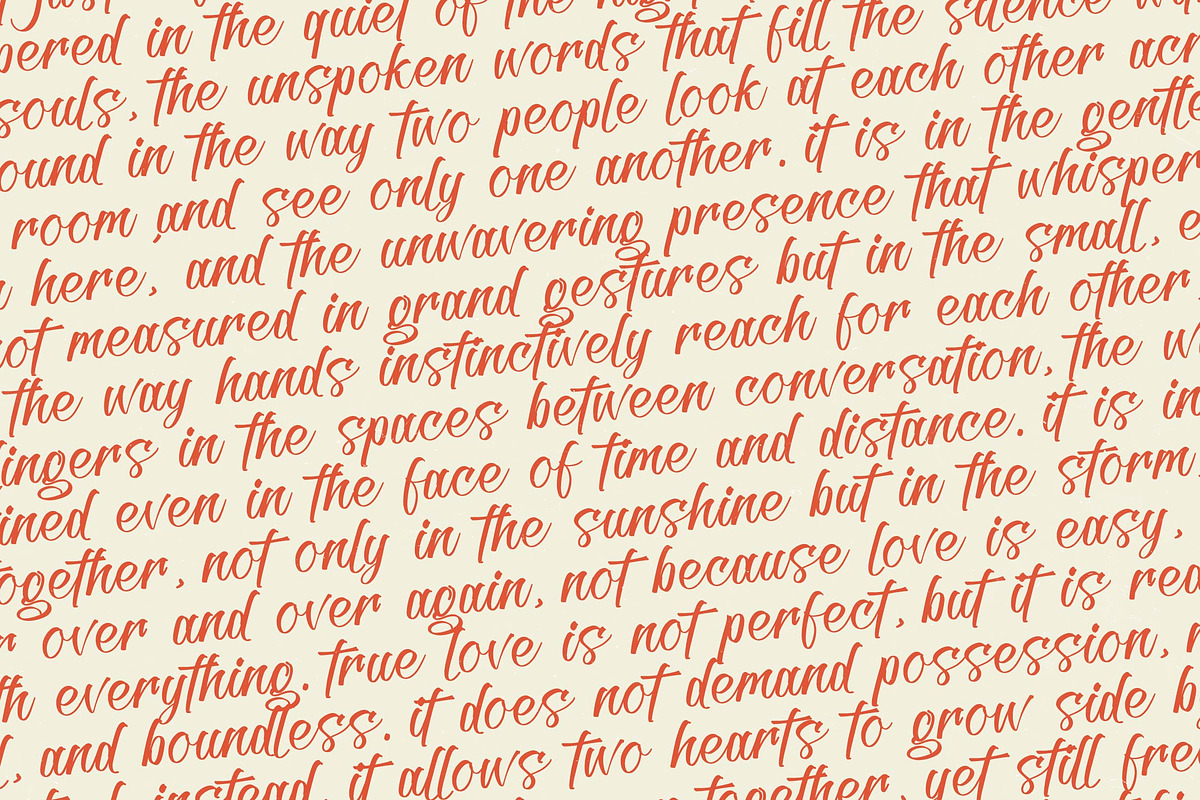 in the quiet of the
souls, the unspoken words that fill the silence
in the way two people look at each other
room, and see only one another. it is in the
here, and the unwavering presence that
not measured in grand gestures but in the small,
the way hands instinctively reach for each other
in the spaces between conversation, the
even in the face of time and distance. it is in
together, not only in the sunshine but in the storm
over and over again, not because love is easy,
everything. true love is not perfect, but it is
and boundless. it does not demand possession,
instead, it allows two hearts to grow side
together, yet still